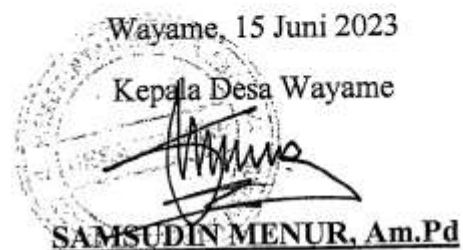 Wayame, 15 Juni 2023
Kepala Desa Wayame
SAMSUDIN MENUR, Am.Pd